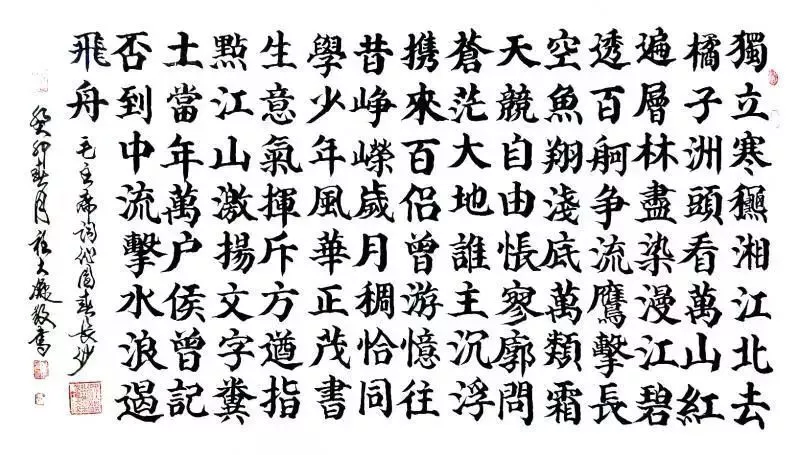 獨立寒龝湘江北去
橘子洲頭看萬山紅
遍層林盡染漫江碧
透百舸争流鷹擊長
空魚翔淺底萬類霜
天競自由悵寥廓問
蒼茫大地誰主沉浮
携來百侣曾游憶往
昔峥嶸歲月稠恰同
學少年風華正茂書
生意氣揮斥方遒指
點江山激揚文字糞
土當年萬户侯曾記
否到中流擊水浪遏
飛舟 毛主席詞沁園春長沙
癸卯春月